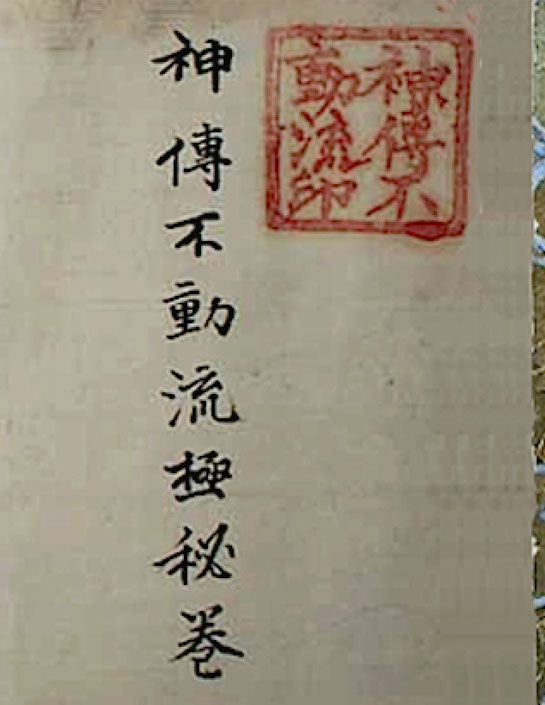 神傳不
動流印
神傳不動流極秘巻